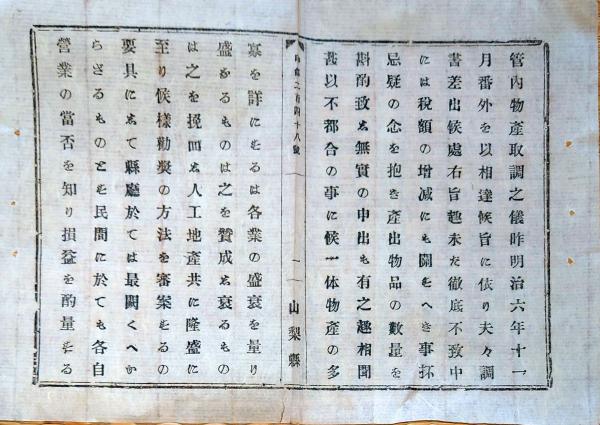 管內物產取調之儀昨明治六年十一
月番外を以相達候旨に依り夫々調
書差出候處右旨趣未だ徹底不致中
には稅額の增減にも關をべき事抔
忌疑の念を抱き產出物品の數量を
斟酌致ゑ無實の申出も有之趣相聞
甚以不都合の事に候一体物產の多
第二百四十八號
一
山梨縣
寡を詳にをるは各業の盛衰を量り
盛なるものは之を賛成ゑ衰るもの
は之を挽回ゑ人工地產共に隆盛に
至り候樣勸奬の方法を審案をるの
要具にゑて縣廳於ては最闕くへか
らざるものとを民間に於ても各自
營業の當否を知り損益を酌量をる